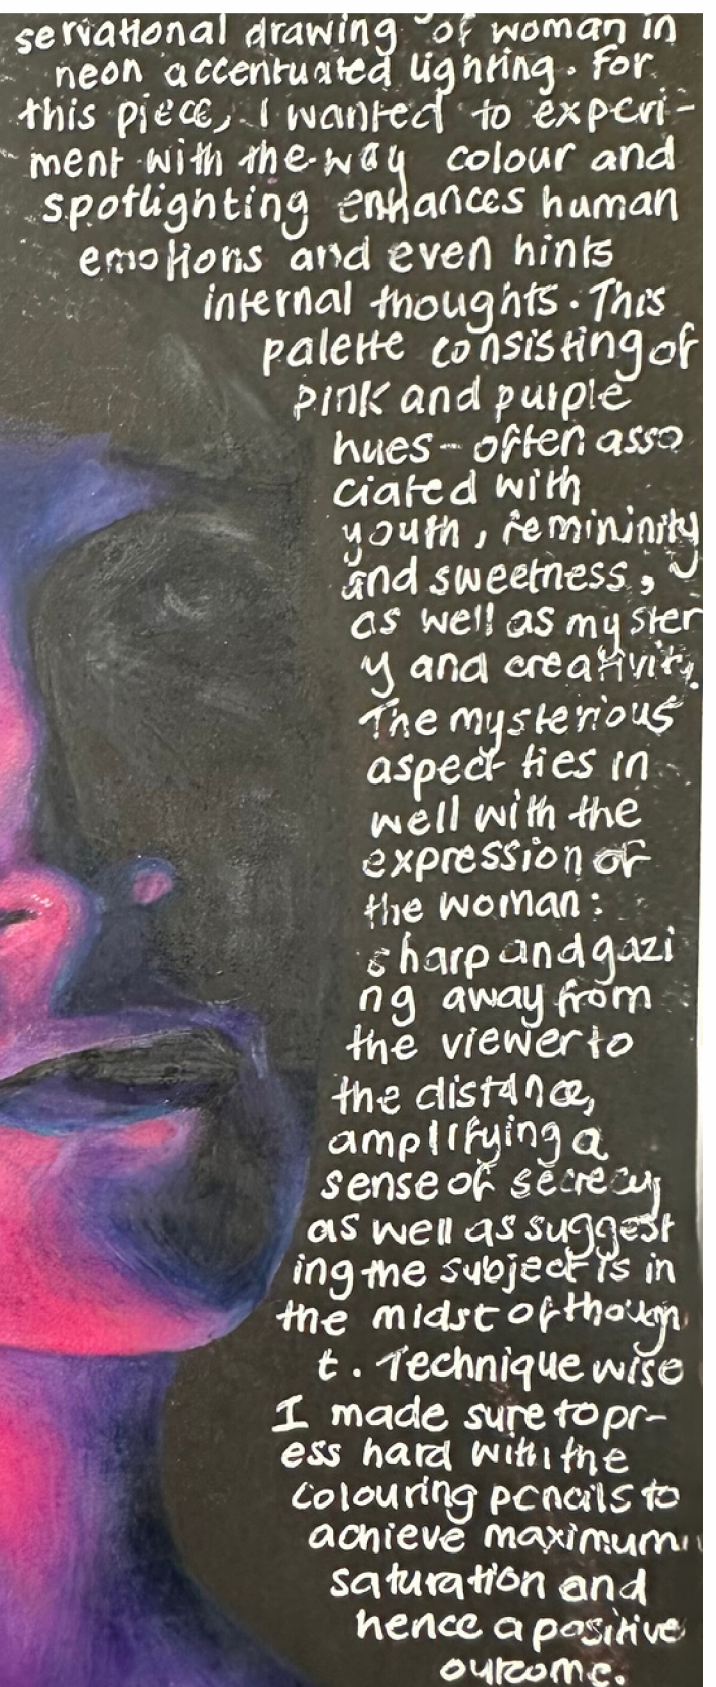 servational drawing of woman in
neon accentuated lighting. For
this piece, I wanted to experi-
ment with the way colour and
spotlighting enhances human
emotions and even hints
internal thoughts. This
palette consisting of
pink and purple
hues - often asso
ciated with
youth, femininity
and sweetness,
as well as myster
y and creativity.
The mysterious
aspect ties in
well with the
expression of
the woman:
sharp and gazi
ng away from
the viewer to
the distance,
amplifying a
sense of secrecy
as well as suggest
ing the subject is in
the midst of though
t. Technique wise
I made sure to pr-
ess hard with the
colouring pencils to
achieve maximum
saturation and
hence a positive
outcome.